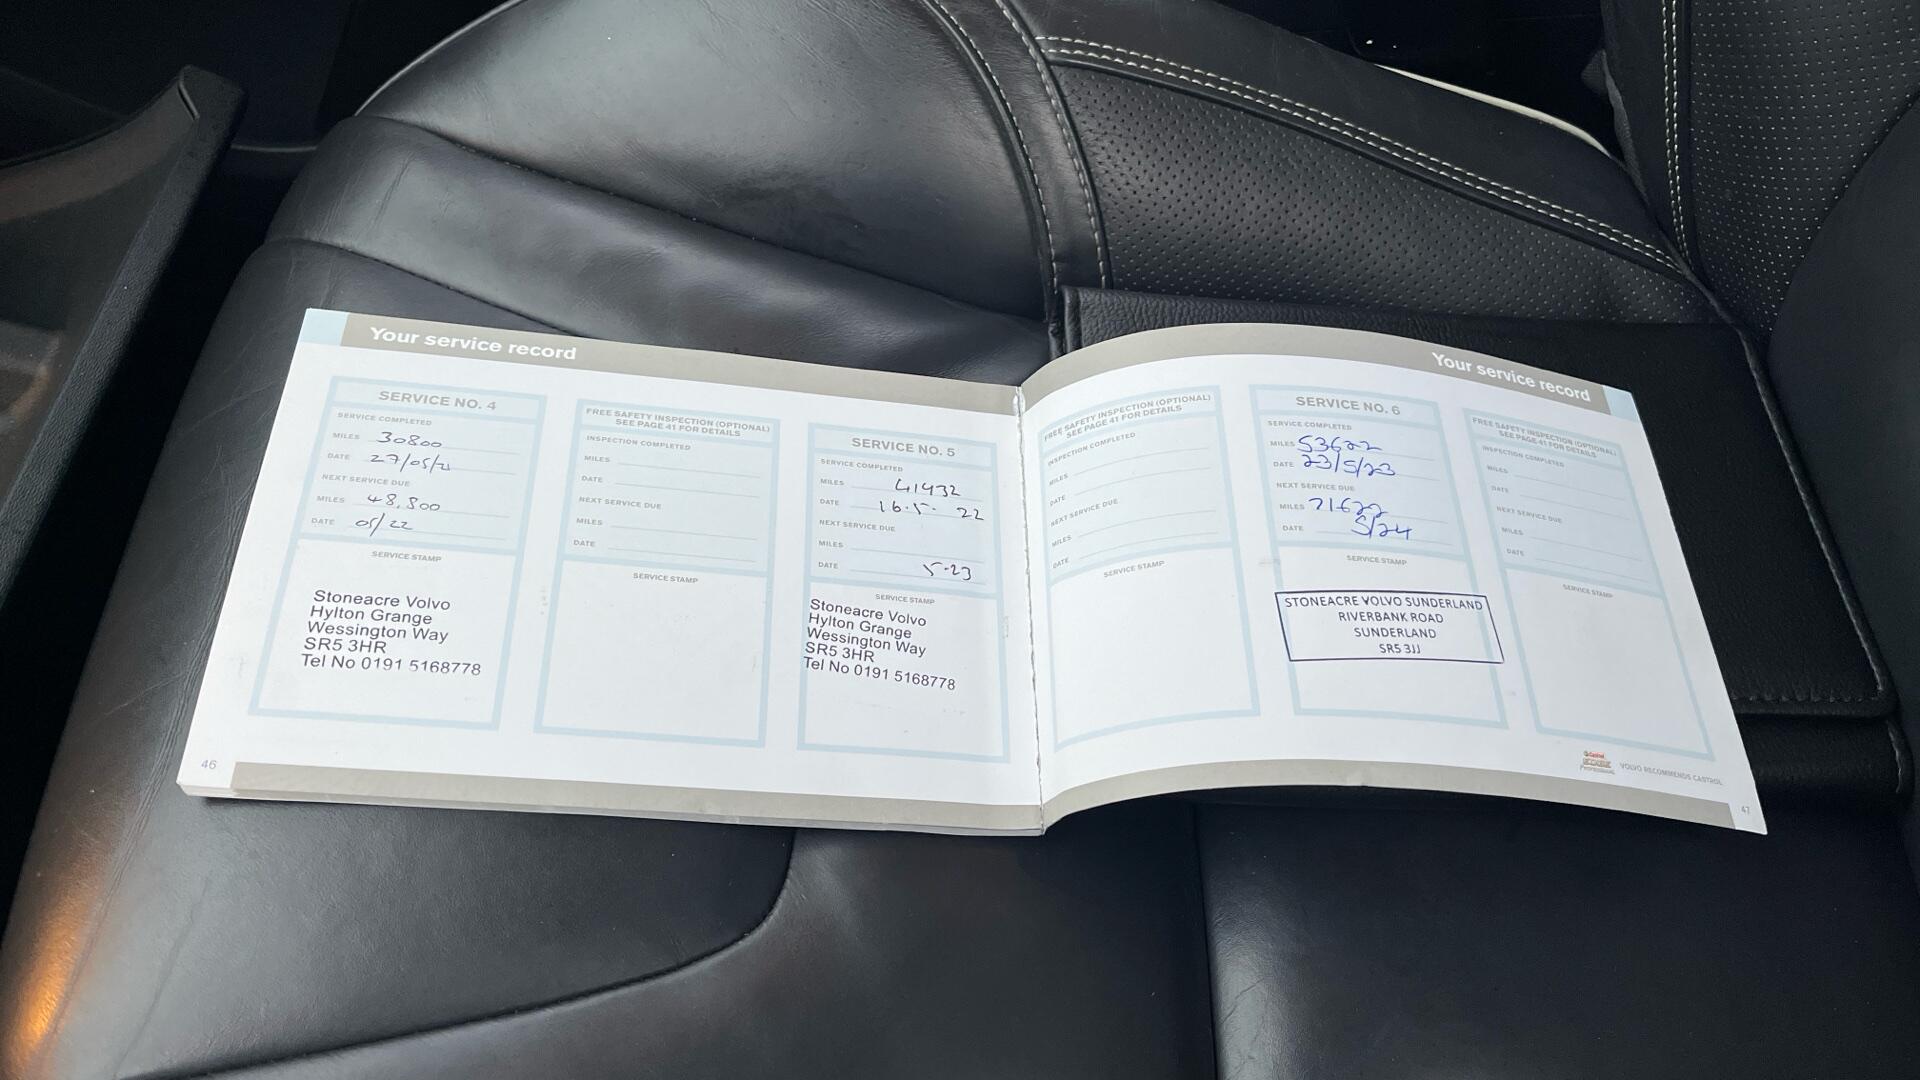 Your service record
SERVICE NO. 4
SERVICE COMPLETED
MILES 30800
DATE 27/05/21
NEXT SERVICE DUE
MILES 48,800
DATE 05/22
SERVICE STAMP
Stoneacre Volvo
Hylton Grange
Wessington Way
SR5 3HR
Tel No 0191 5168778
FREE SAFETY INSPECTION (OPTIONAL)
SEE PAGE 41 FOR DETAILS
INSPECTION COMPLETED
MILES
DATE
NEXT SERVICE DUE
MILES
DATE
SERVICE STAMP
SERVICE NO. 5
SERVICE COMPLETED
MILES 41932
DATE 16.5. 22
NEXT SERVICE DUE
MILES
DATE 5-23
SERVICE STAMP
Stoneacre Volvo
Hylton Grange
Wessington Way
SR5 3HR
Tel No 0191 5168778
46
Your service record
FREE SAFETY INSPECTION (OPTIONAL)
SEE PAGE 41 FOR DETAILS
INSPECTION COMPLETED
MILES
DATE
NEXT SERVICE DUE
MILES
DATE
SERVICE STAMP
SERVICE NO. 6
SERVICE COMPLETED
MILES 53622
DATE 23/5/23
NEXT SERVICE DUE
MILES 71622
DATE 5/24
SERVICE STAMP
STONEACRE VOLVO SUNDERLAND
RIVERBANK ROAD
SUNDERLAND
SR5 3JJ
FREE SAFETY INSPECTION (OPTIONAL)
SEE PAGE 41 FOR DETAILS
INSPECTION COMPLETED
MILES
DATE
NEXT SERVICE DUE
MILES
DATE
SERVICE STAMP
Castrol
EDGE
Professional
VOLVO RECOMMENDS CASTROL
47